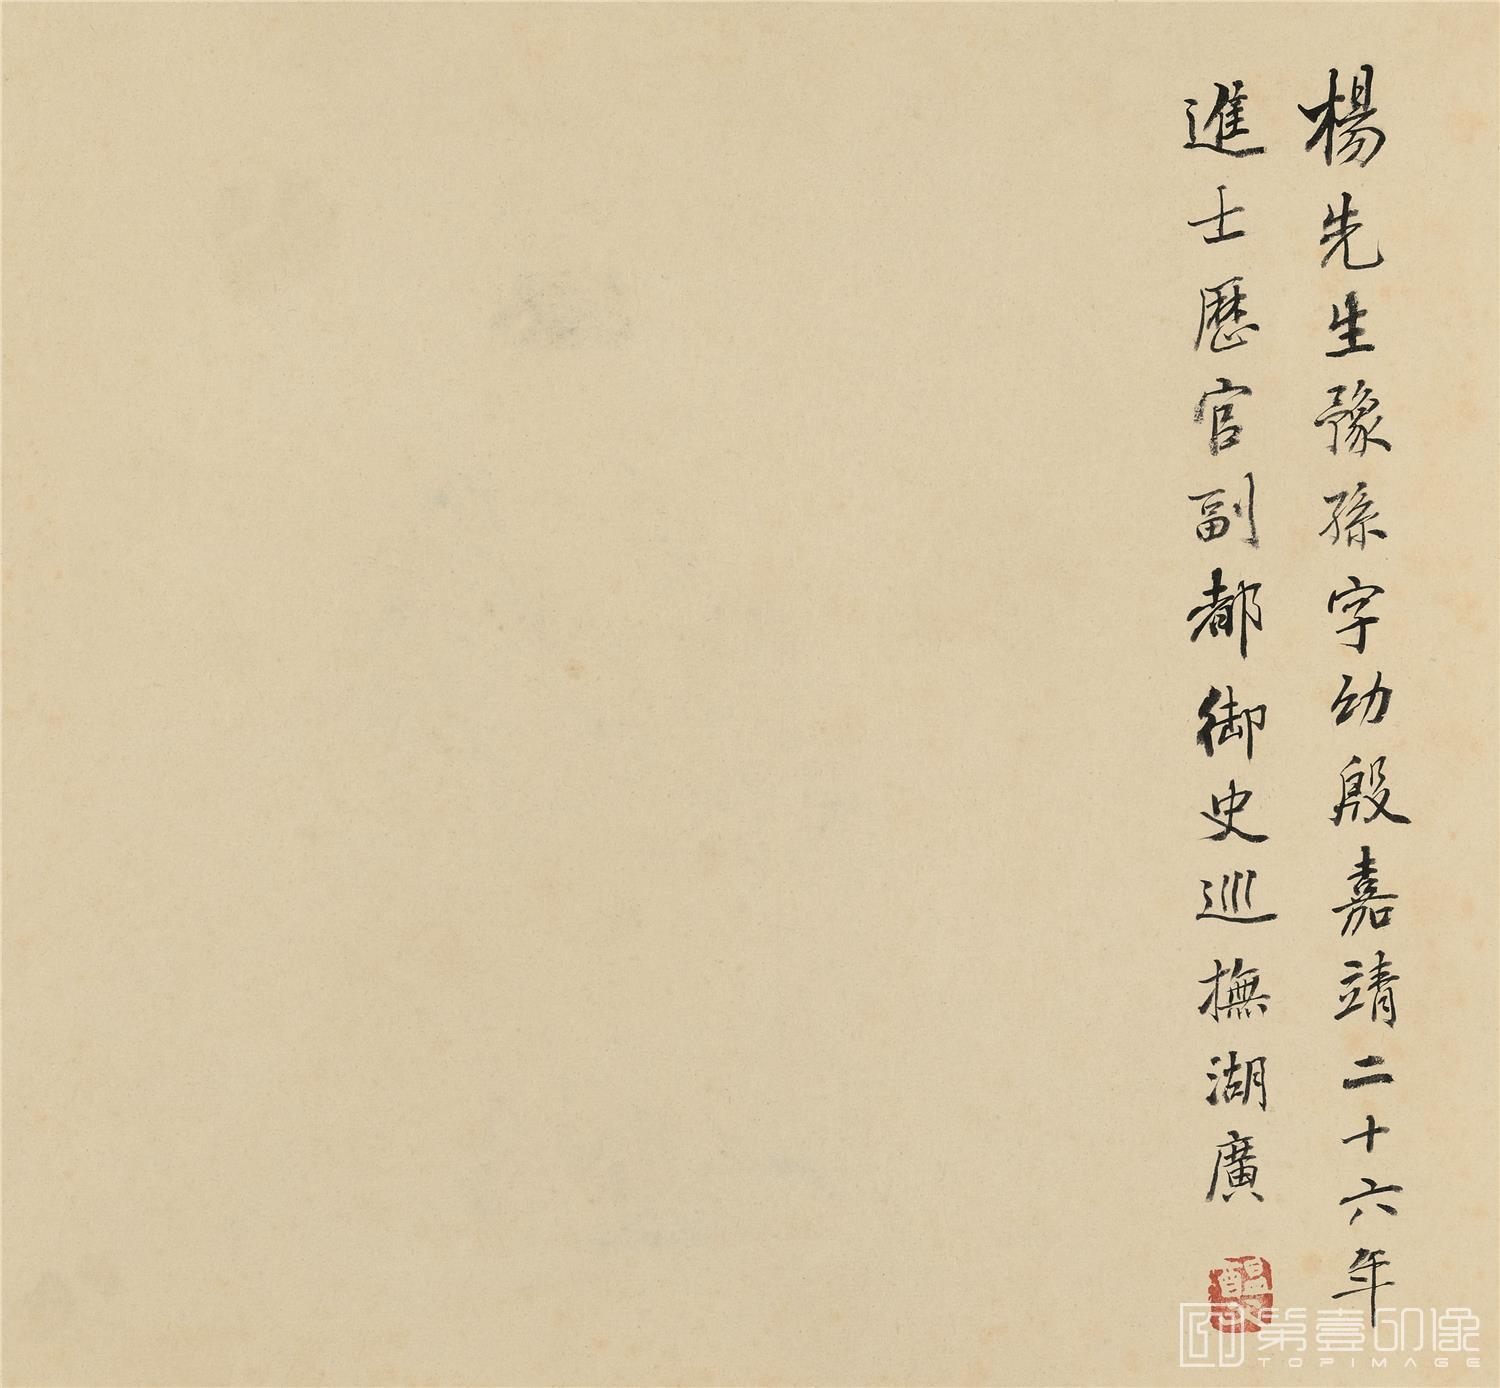 楊先生豫孫字幼殷嘉靖二十六年
進士歷官副都御史巡撫湖廣
第壹印像
TOPIMAGE